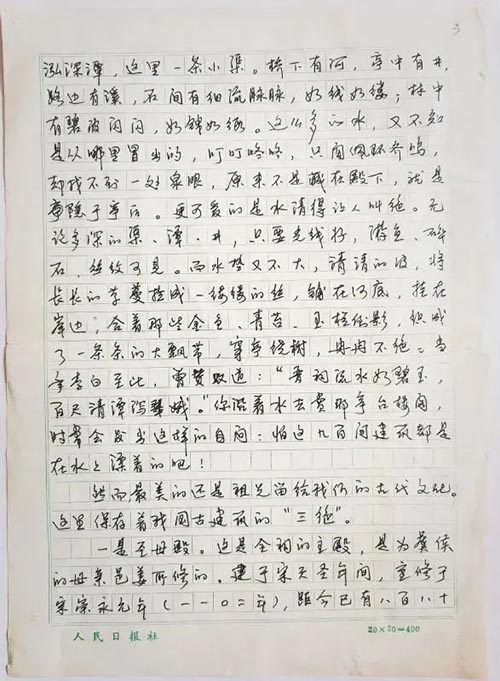 3
泓深潭，这里一条小渠。桥下有河，亭中有井，
路边有溪，石间有细流脉脉，如线如缕；林中
有碧波闪闪，如锦如缎。这么多的水，又不知
是从哪里冒出的，叮叮咚咚，只闻佩环齐鸣，
却找不到一处泉眼，原来不是藏在殿下，就是
隐于亭后。更可爱的是水清得让人叫绝。无
论多深的渠、潭、井，只要光线好，游鱼、碎
石，丝纹可见。而水势又不大，清清的波，将
长长的草蔓拉成一缕缕的丝，铺在河底，挂在
岸边，合着那些金鱼、青苔、玉栏倒影，织成
了一条条的大飘带，穿亭绕榭，冉冉不绝。当
年李白至此，曾赞叹道：“晋祠流水如碧玉，
百尺清潭泻翠娥。”你沿着水去赏那亭台楼阁，
时常会发出这样的自问：怕这几百间建筑都是
在水上漂着的吧！
然而最美的还是祖先留给我们的古代文化。
这里保存着我国古建筑的“三绝”。
一是圣母殿。这是全祠的主殿，是为虞侯
的母亲邑姜所修的。建于宋天圣年间，重修于
宋崇宁元年（一一〇二年），距今已有八百八十
人民日报社 20×20=400